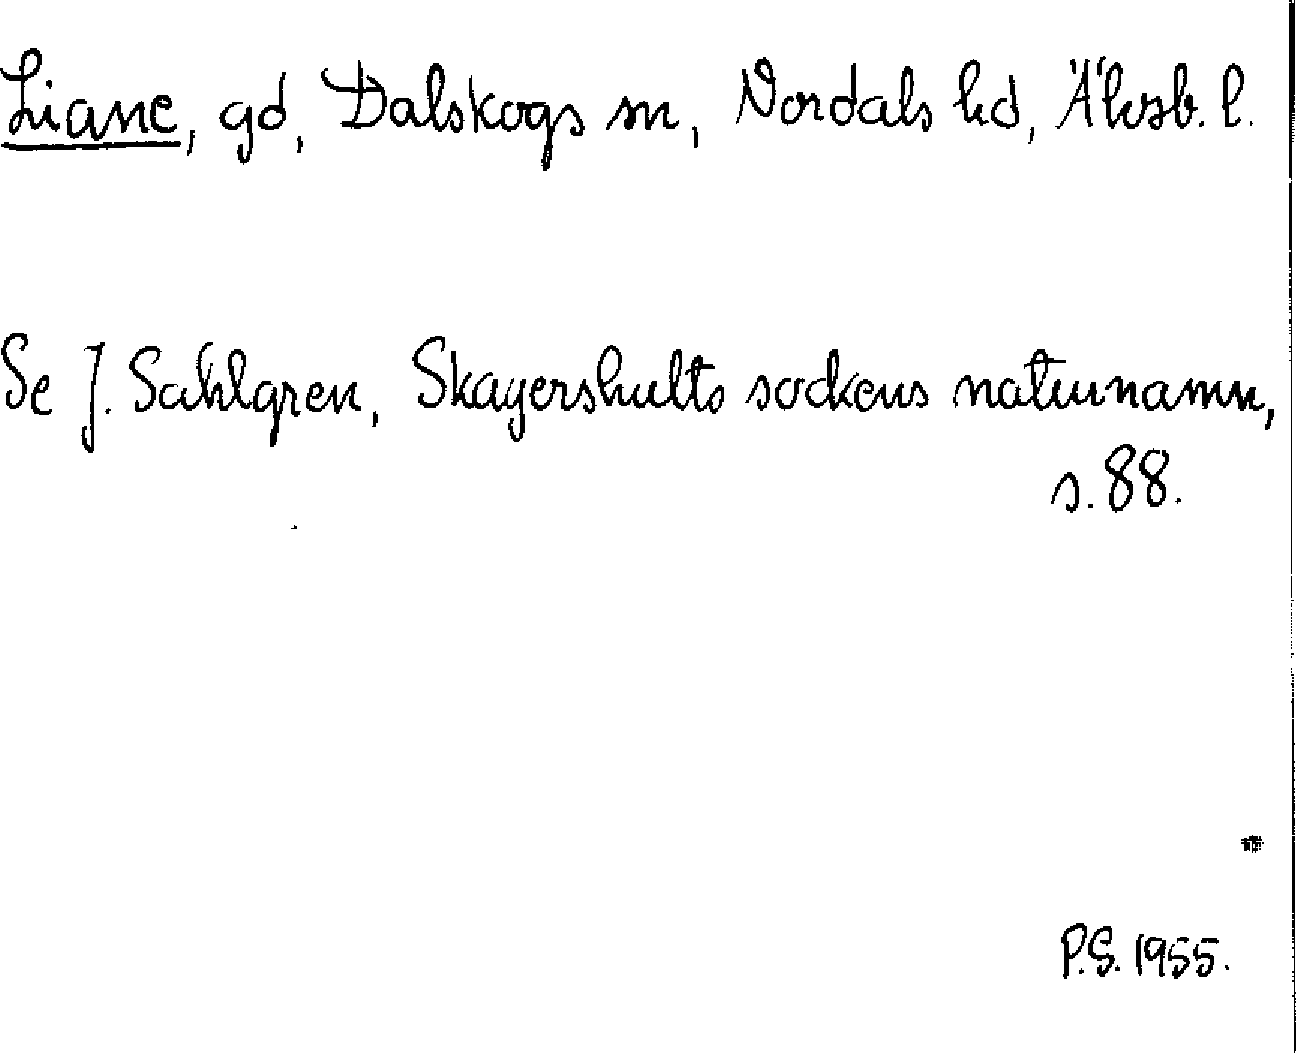 Liane, gd, Dalskogs sn, Nordals hd, Älvsb. l.
Se J. Sahlgren, Skagershults sockens naturnamn,
s. 88.
P.S. 1955.